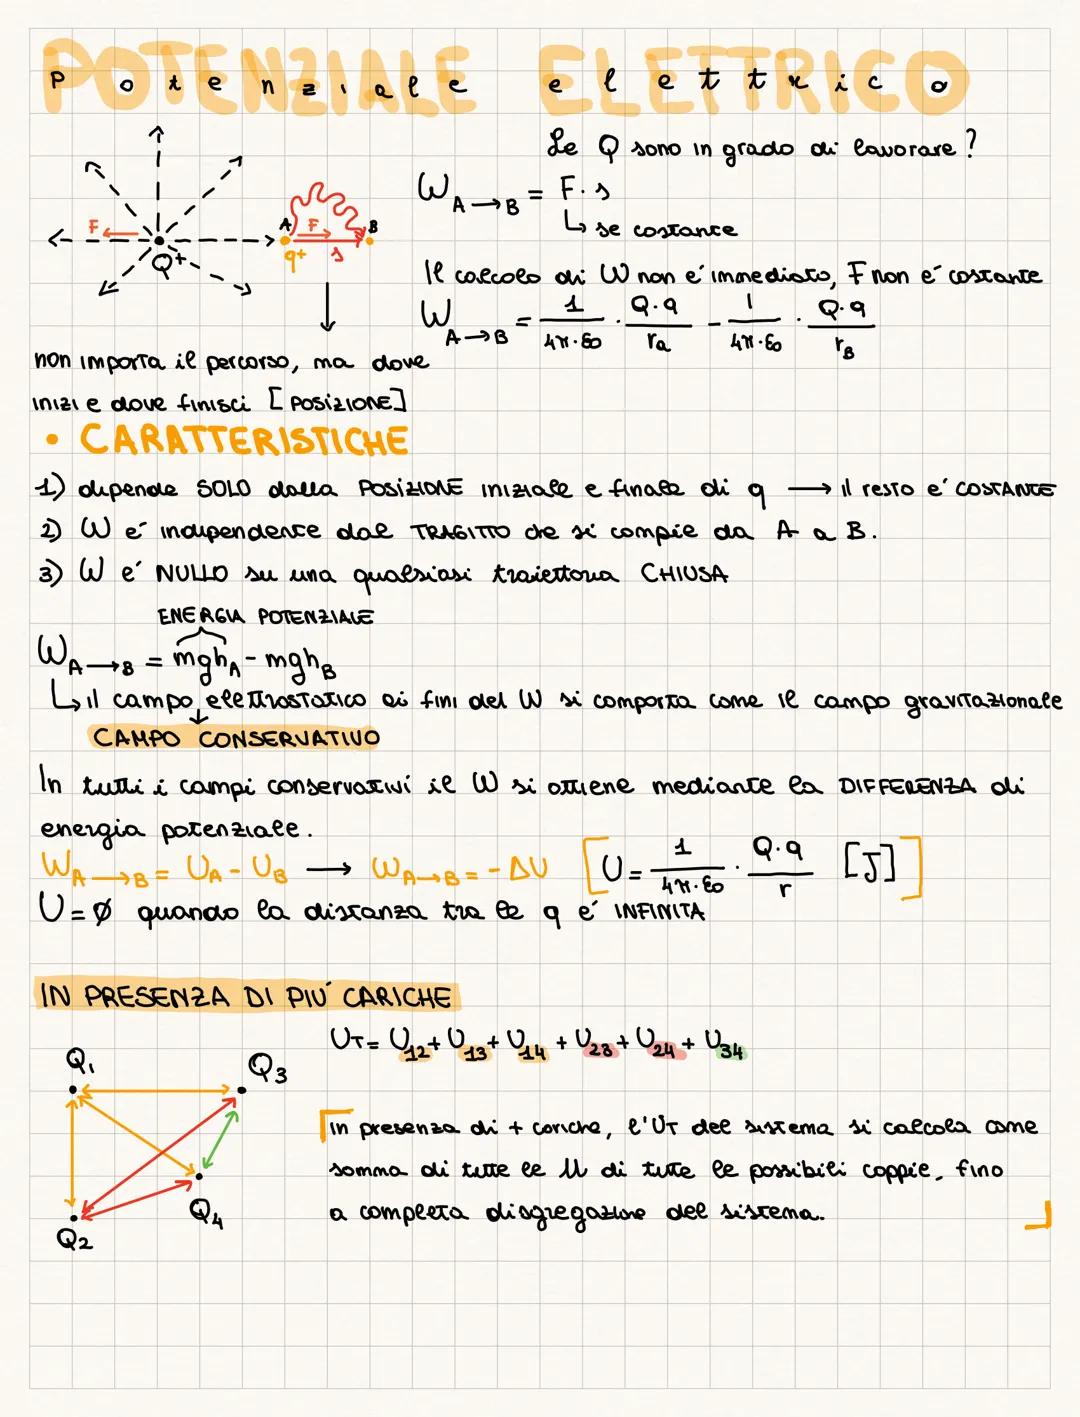 POTENZIALE ELETTRICO
Potenziale elettrico
Le Q sono in grado di lavorare?
W A→B = F · s
↳ se costante
F
Q+
A
F
B
q+
s
Il calcolo di W non e' immediato, F non e' costante
W A→B = 1/4π·ε0 · Q·q/ra - 1/4π·ε0 · Q·q/rB
non importa il percorso, ma dove
inizi e dove finisci [POSIZIONE]
• CARATTERISTICHE
1) dipende SOLO dalla POSIZIONE iniziale e finale di q → il resto e' COSTANTE
2) W e' indipendente dal TRAGITTO che si compie da A a B.
3) W e' NULLO su una qualsiasi traiettoria CHIUSA
ENERGIA POTENZIALE
W A→B = mghA - mghB
↳ il campo elettrostatico ai fini del W si comporta come il campo gravitazionale
CAMPO CONSERVATIVO
In tutti i campi conservativi il W si ottiene mediante la DIFFERENZA di
energia potenziale.
W A→B = UA - UB → W A→B = - ΔU [U = 1/4π·ε0 · Q·q/r [J]]
U = Ø quando la distanza tra le q e' INFINITA
IN PRESENZA DI PIU' CARICHE
UT = U12 + U13 + U14 + U23 + U24 + U34
Q1
Q3
Q4
Q2
in presenza di + cariche, l'UT del sistema si calcola come
somma di tutte le U di tutte le possibili coppie, fino
a completa disgregazione del sistema.